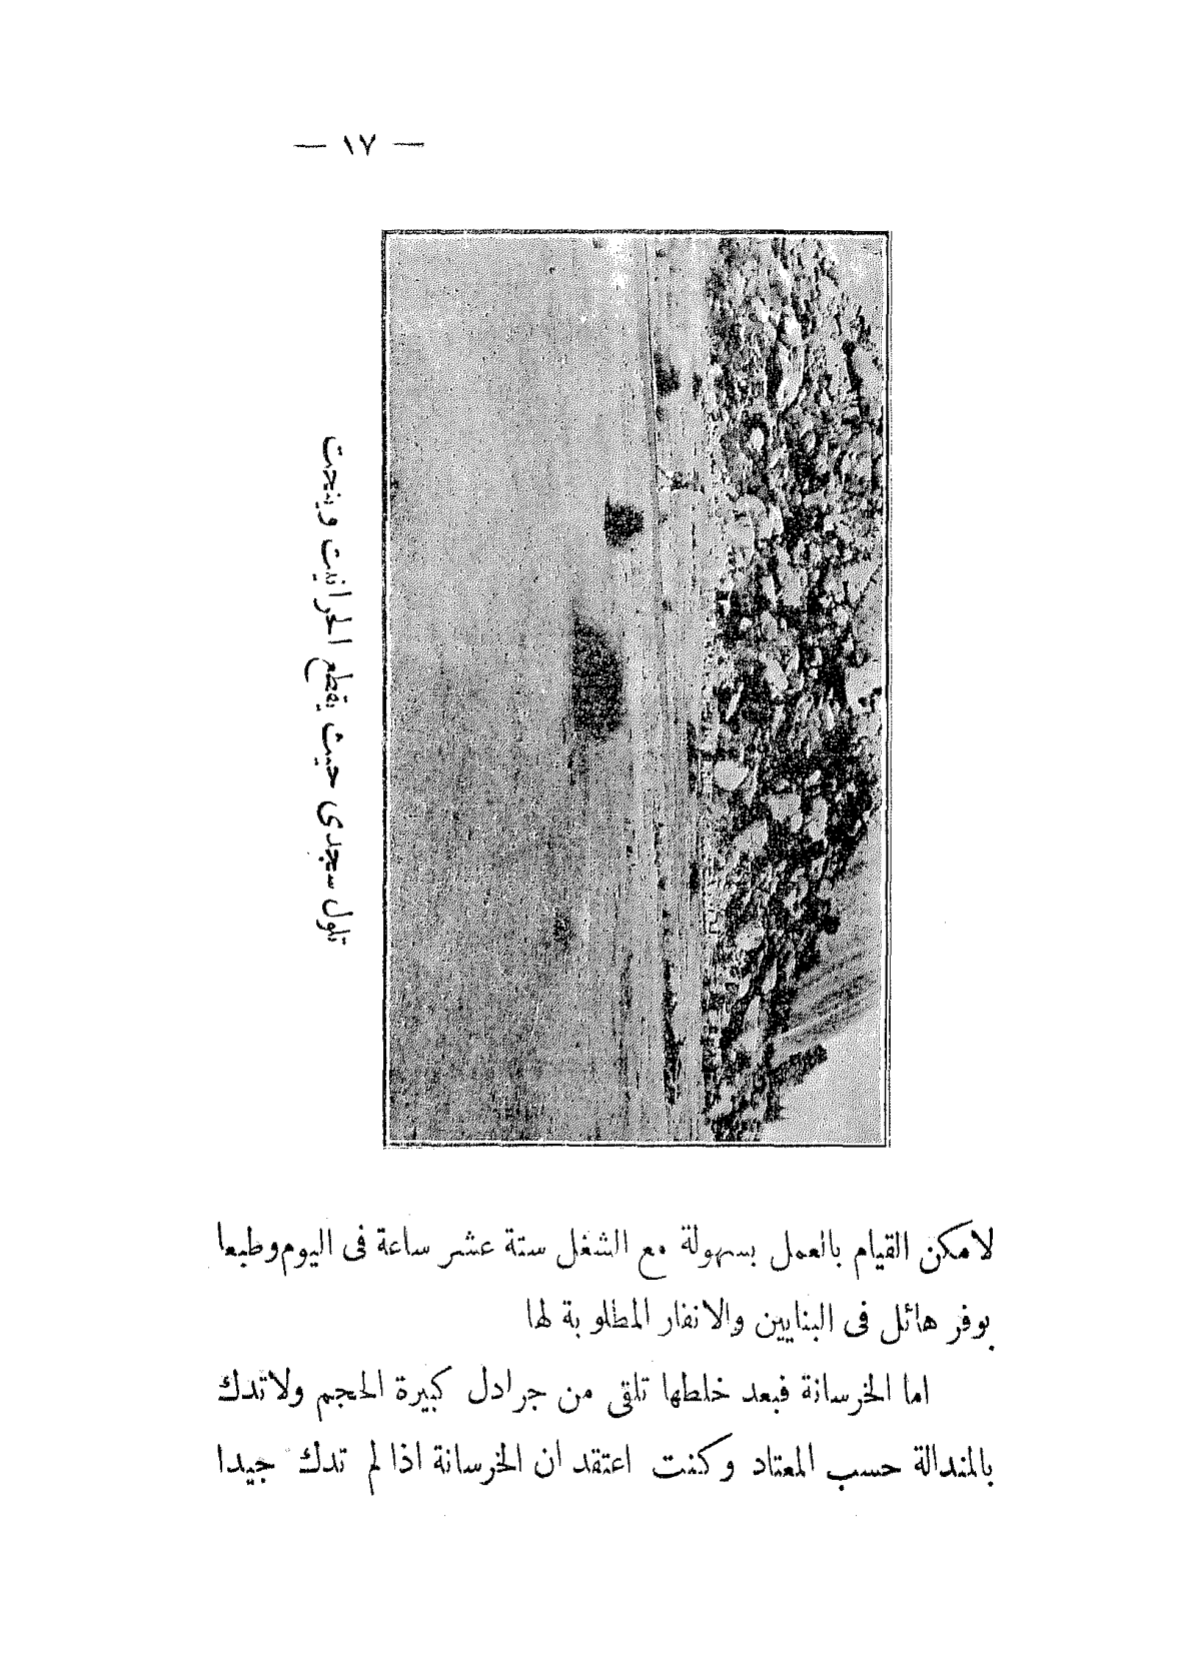 — ١٧ —
تلول سجدى حيث يقطع الجرانيت وينحت
لامكن القيام بالعمل بسهولة مع الشغل ستة عشر ساعة فى اليوم وطبعا
بوفر هائل فى البنايين والانفار المطلوبة لها
اما الخرسانة فبعد خلطها تلقى من جرادل كبيرة الحجم ولاتدك
بالمندالة حسب المعتاد وكنت اعتقد ان الخرسانة اذا لم تدك جيدا